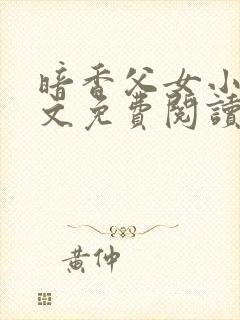 暗香父女小
文免費閱讀
黃仲